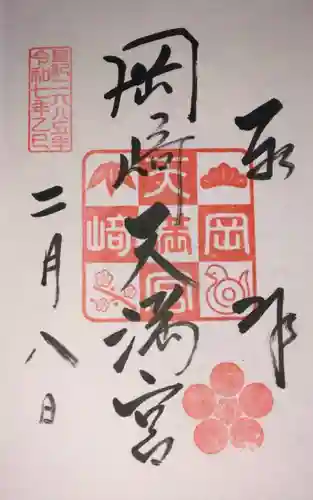 奉拝
岡崎天満宮
二月八日
皇紀二六八五年
令和七年乙巳
天満宮
岡
崎